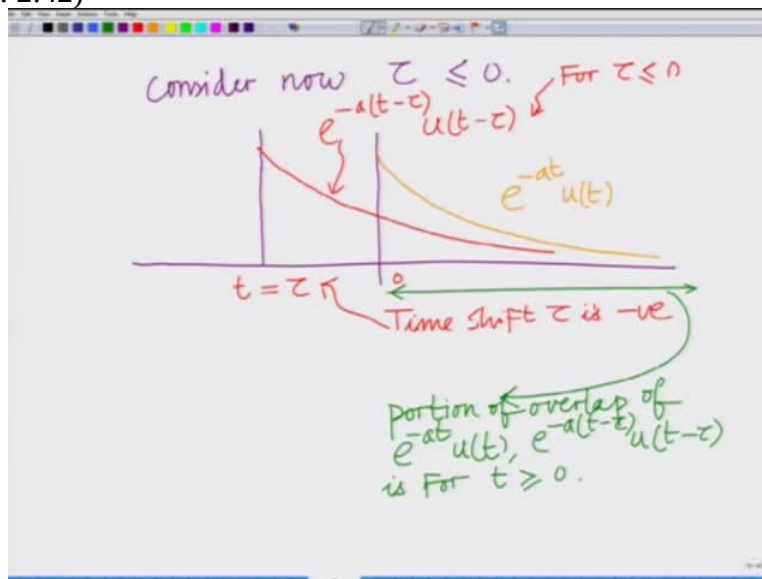 : 2:42)
Consider now τ ≤ 0.
For τ ≤ 0
e^{-a(t-τ)} u(t-τ)
e^{-at} u(t)
t = τ
0
Time Shift τ is -ve
portion of overlap of
e^{-at} u(t), e^{-a(t-τ)} u(t-τ)
is For t ≥ 0.